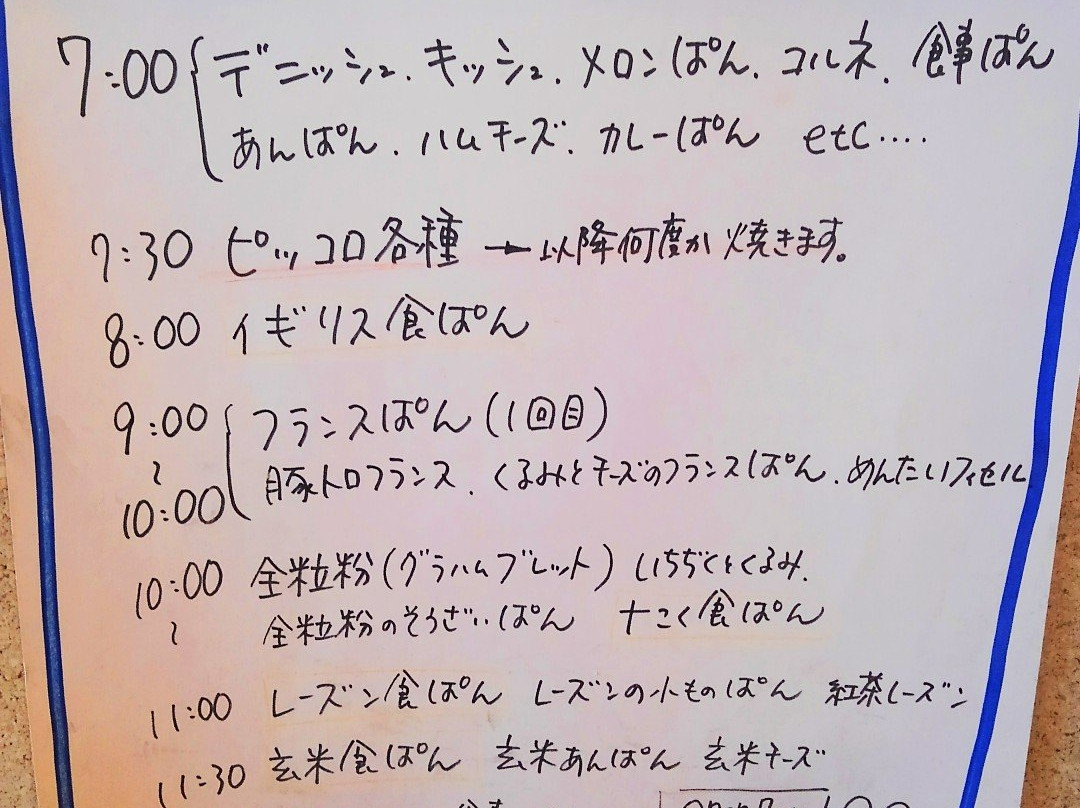 7:00 デニッシュ、キッシュ、メロンぱん、コルネ、食事ぱん
あんぱん、ハムチーズ、カレーぱん etc....
7:30 ピッコロ各種 → 以降何度か焼きます。
8:00 イギリス食ぱん
9:00 フランスぱん(1回目)
〜 豚トロフランス、くるみとチーズのフランスぱん、めんたいフィセル
10:00
10:00 全粒粉(グラハムブレット) いちぢくとくるみ、
〜 全粒粉のそうざいぱん 十こく食ぱん
11:00 レーズン食ぱん レーズンの小ものぱん 紅茶レーズン
11:30 玄米食ぱん 玄米あんぱん 玄米チーズ